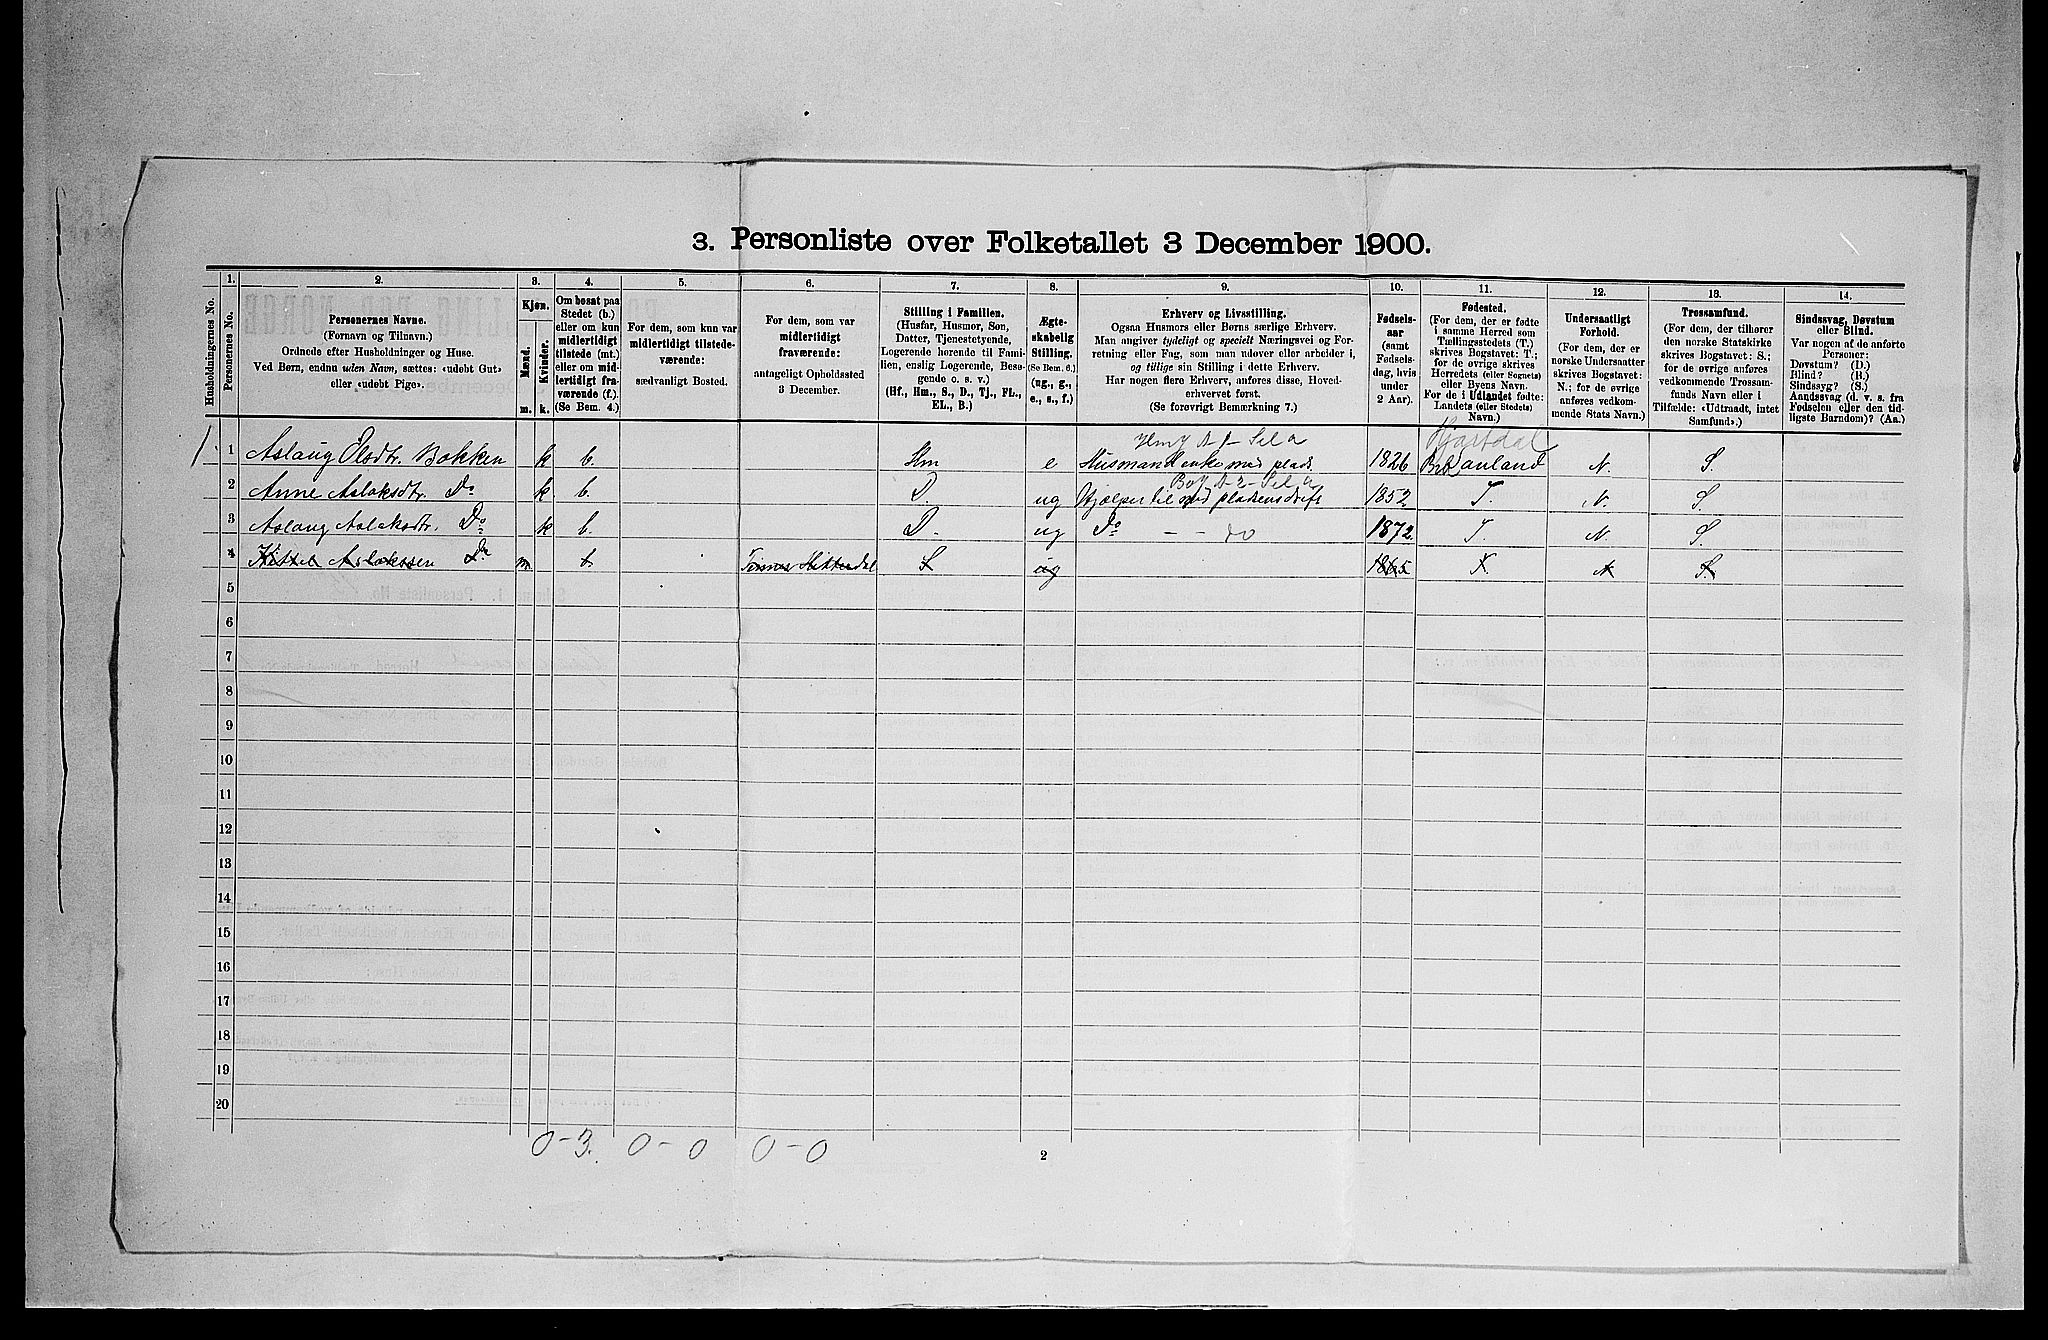 3. Personliste over Folketallet 3 December 1900.
Husholdningernes No.
1.
Personernes No.
2.
Personernes Navne.
(Fornavn og Tilnavn.)
Ordnede efter Husholdninger og Huse.
Ved Børn, endnu uden Navn, sættes: «udøbt Gut»
eller «udøbt Pige».
3.
Kjøn.
Mænd.
Kvinder.
m. k.
4.
Om bosat paa
Stedet (b.)
eller om kun
midlertidigt
tilstede (mt.)
eller om mid-
lertidigt fra-
værende (f.).
(Se Bem. 4.)
5.
For dem, som kun var
midlertidigt tilstede-
værende:
sædvanligt Bosted.
6.
For dem, som var
midlertidigt
fraværende:
antageligt Opholdssted
3 December.
7.
Stilling i Familien.
(Husfar, Husmor, Søn,
Datter, Tjenestetyende,
Logerende hørende til Fami-
lien, enslig Logerende, Besø-
gende o. s. v.)
(Hf., Hm., S., D., Tj., FL.,
EL., B.)
8.
Ægte-
skabelig
Stilling.
(Se Bem. 6.)
(ug., g.,
e., s., f.)
9.
Erhverv og Livsstilling.
Ogsaa Husmors eller Børns særlige Erhverv.
Man angiver tydeligt og specielt Næringsvei og For-
retning eller Fag, som man udøver eller arbeider i,
og tillige sin Stilling i dette Erhverv.
Har nogen flere Erhverv, anføres disse, Hoved-
erhvervet først.
(Se forøvrigt Bemærkning 7.)
10.
Fødsels-
aar
(samt
Fødsels-
dag, hvis
under
2 Aar).
11.
Fødested.
(For dem, der er fødte
i samme Herred som
Tællingsstedets (T.)
skrives Bogstavet: T.;
for de øvrige skrives
Herredets (eller Sognets)
eller Byens Navn.
For de i Udlandet fødte:
Landets (eller Stedets)
Navn.)
12.
Undersaatligt
Forhold.
(For dem, der er
norske Undersaatter
skrives Bogstavet:
N.; for de øvrige
anføres vedkom-
mende Stats Navn.)
13.
Trossamfund.
(For dem, der tilhører
den norske Statskirke
skrives Bogstavet: S.;
for de øvrige anføres
vedkommende Trossam-
funds Navn eller i
Tilfælde: «Udtraadt, intet
Samfund».)
14.
Sindssvag, Døvstum
eller Blind.
Var nogen af de anførte
Personer:
Døvstum? (D.)
Blind? (B.)
Sindssyg? (S.)
Aandssvag (d. v. s. fra
Fødselen eller den tid-
ligste Barndom)? (Aa.)
Hjartdal
1 1 Aslaug Olsdtr. Bakken k b. Hm e Husmandsenke med plads. 1826 Brauland N. S.
2 Anne Aslaksdtr. Do k b. D. ug Hjælper til med pladsens drift 1852 T. N. S.
3 Aslaug Aslaksdtr. Do k b. D. ug Do — - do 1872. T. N. S.
4 Kittil Aslakssen Do m. Hitterdal S ug 1865 N S.
5
6
7
8
9
10
11
12
13
14
15
16
17
18
19
20
0-3. 0-0 0-0
2